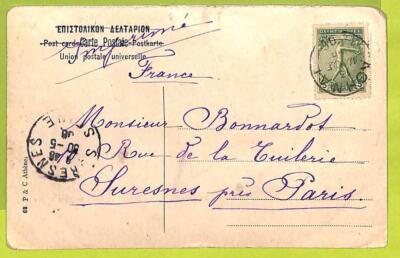 ΕΠΙΣΤΟΛΙΚΟΝ ΔΕΛΤΑΡΙΟΝ
Post card-Carte Postale-Postkarte
Union postale universelle
Imprimé
France
ΑΘΗΝΑΙ
Monsieur Bonnardot
Rue de la Tuilerie
Suresnes près Paris
SURESNES
68 P & C Athènes